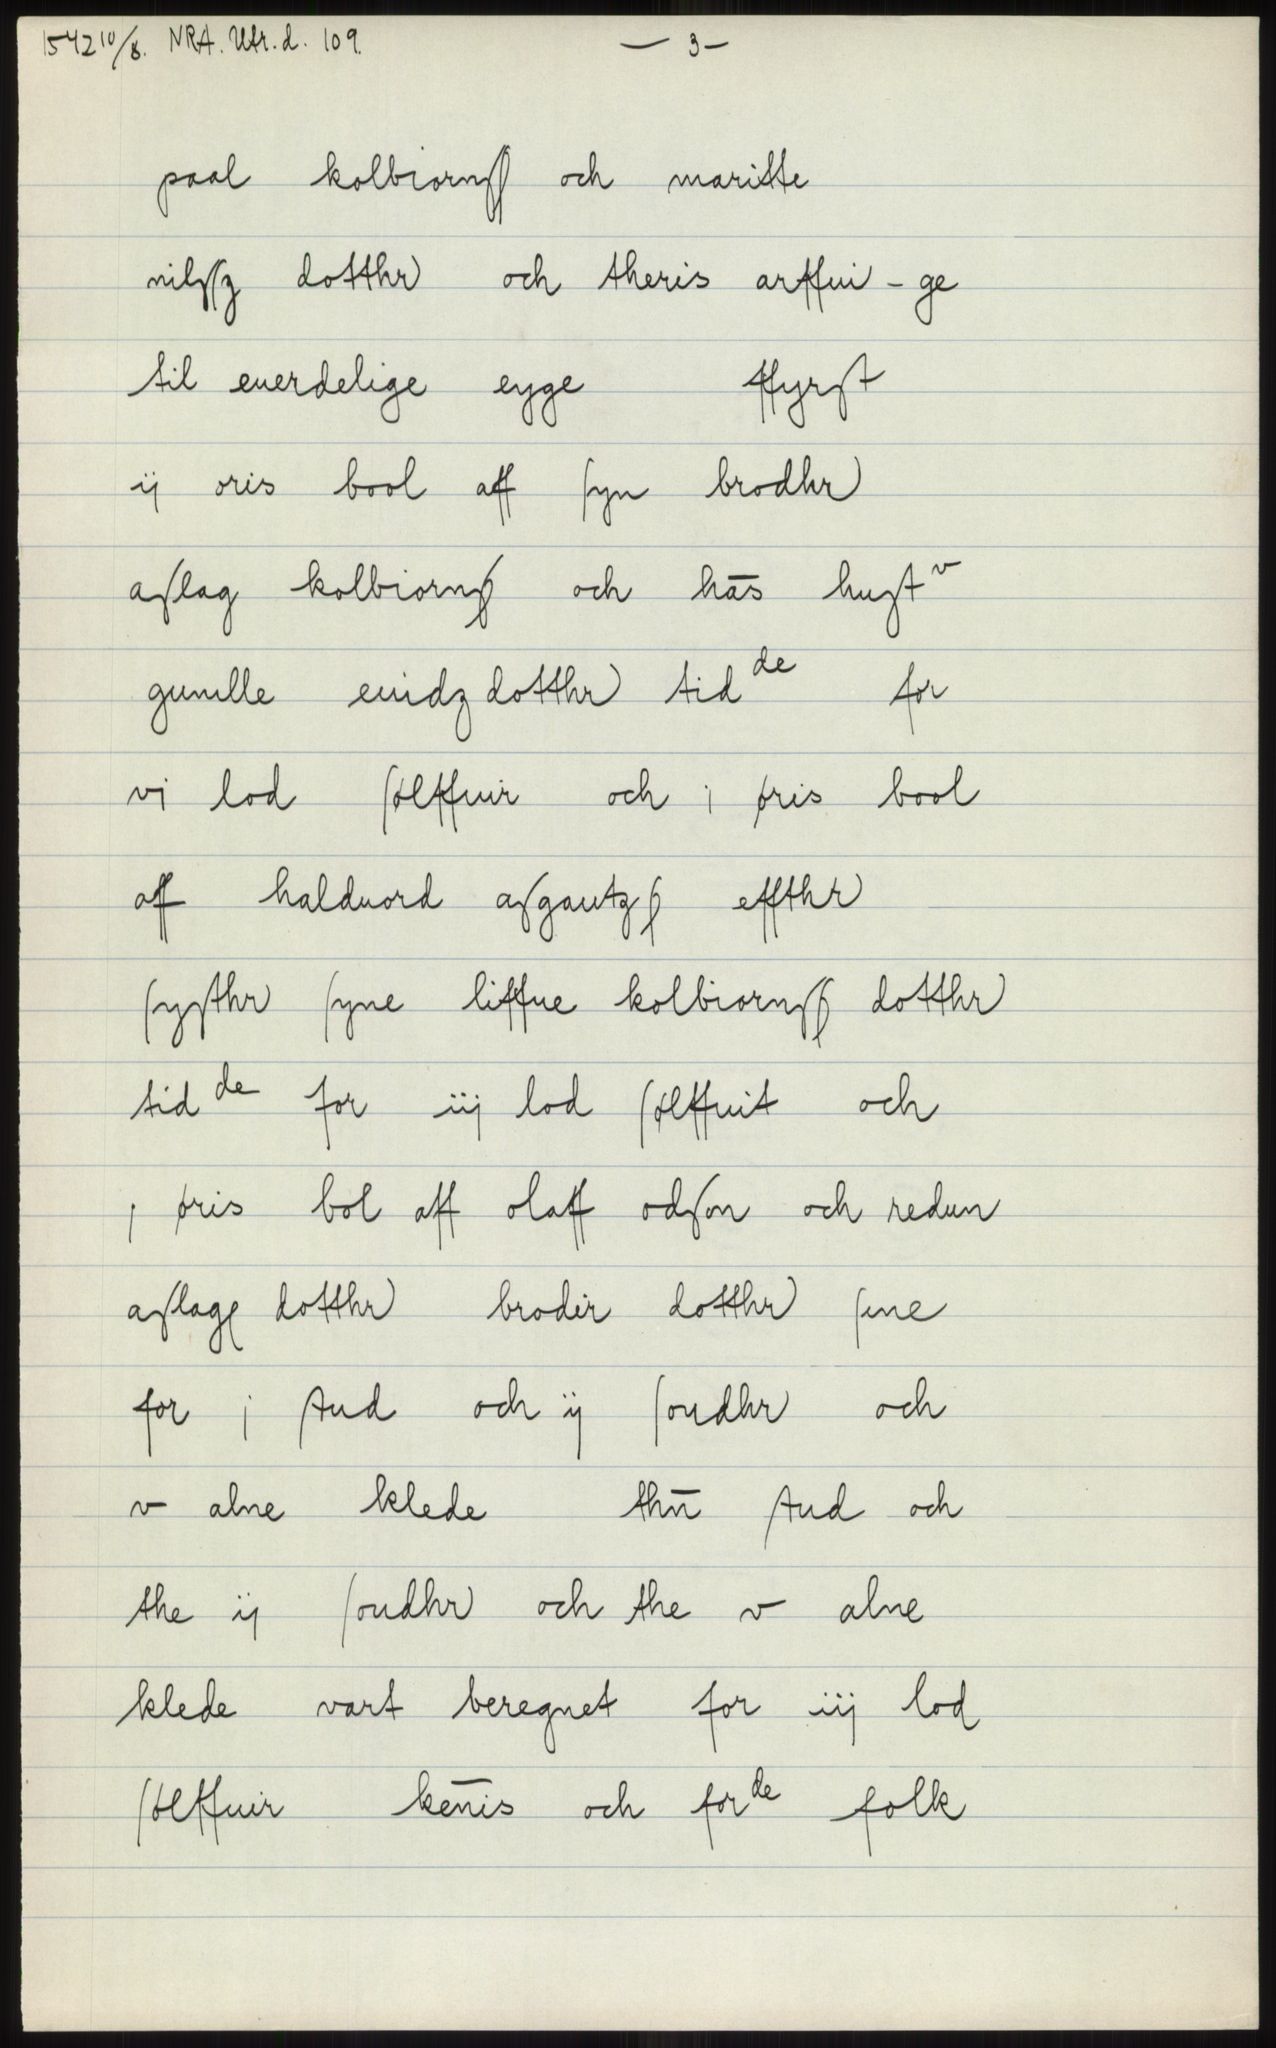 1542 10/8. NRA. Utr. d. 109. — 3 —
paal kolbiornſſ och maritte
nilſſz dotthr och theris arffui - ge
til euerdelige eyge ffyrſt
ij oris bool aff ſyn brodhr
aſlag kolbiornſſ och hās huſtv
gunille euidz dotthr tid de for
vj lod ſølffuir och j øris bool
aff halduord aſgautzſ effthr
ſyſthr ſyne liffue kolbiornſſ dotthr
tid de for iij lod ſølffuit och
j øris bol aff olaff odſon och redun
aſlagſ dotthr brodir dotthr ſine
for j ſtud och ij ſoudhr och
v alne klede thn̄ ſtud och
the ij ſoudhr och the v alne
klede vart beregnet for iij lod
ſølffuir kēnis och for de folk